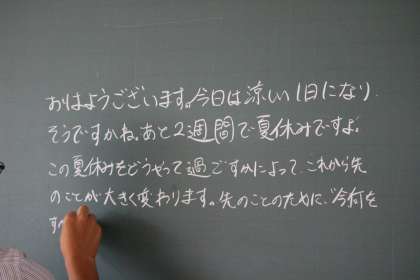 おはようございます。今日は涼しい1日になり
そうですかね。あと2週間で夏休みですよ。
この夏休みをどうやって過ごすかによって、これから先
のことが大きく変わります。先のことのために、今何を
すべ